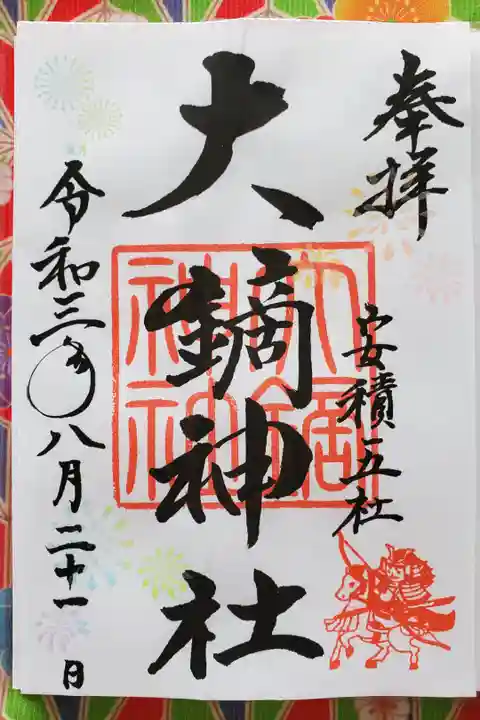 奉拝
安積五社
大鏑神社
大鏑神社
令和三年八月二十一日